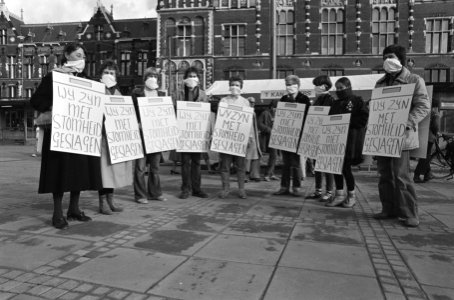 WY ZYN
MET
STOMHEID
GESLAGEN
WY ZYN
MET
STOMHEID
GESLAGEN
WY ZYN
MET
STOMHEID
GESLAGEN
WY ZYN
MET
STOMHEID
GESLAGEN
WY ZYN
MET
STOMHEID
GESLAGEN
WY ZYN
MET
STOMHEID
GESLAGEN
WY ZYN
MET
STOMHEID
GESLAGEN
WY ZYN
MET
STOMHEID
GESLAGEN
WY ZYN
MET
STOMHEID
GESLAGEN